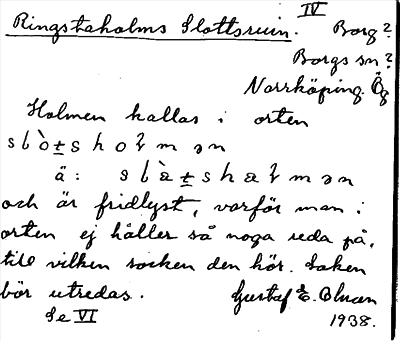 IV
Ringstaholms Slottsruin. Borg?
Borgs sn?
Norrköping. Ög
Holmen kallas i orten
slò±sholmən
ä: slà±shalmən
och är fridlyst, varför man i
orten ej håller så noga reda på,
till vilken socken den hör. Saken
bör utredas. Gustaf E. Olsson
Se VI 1938.